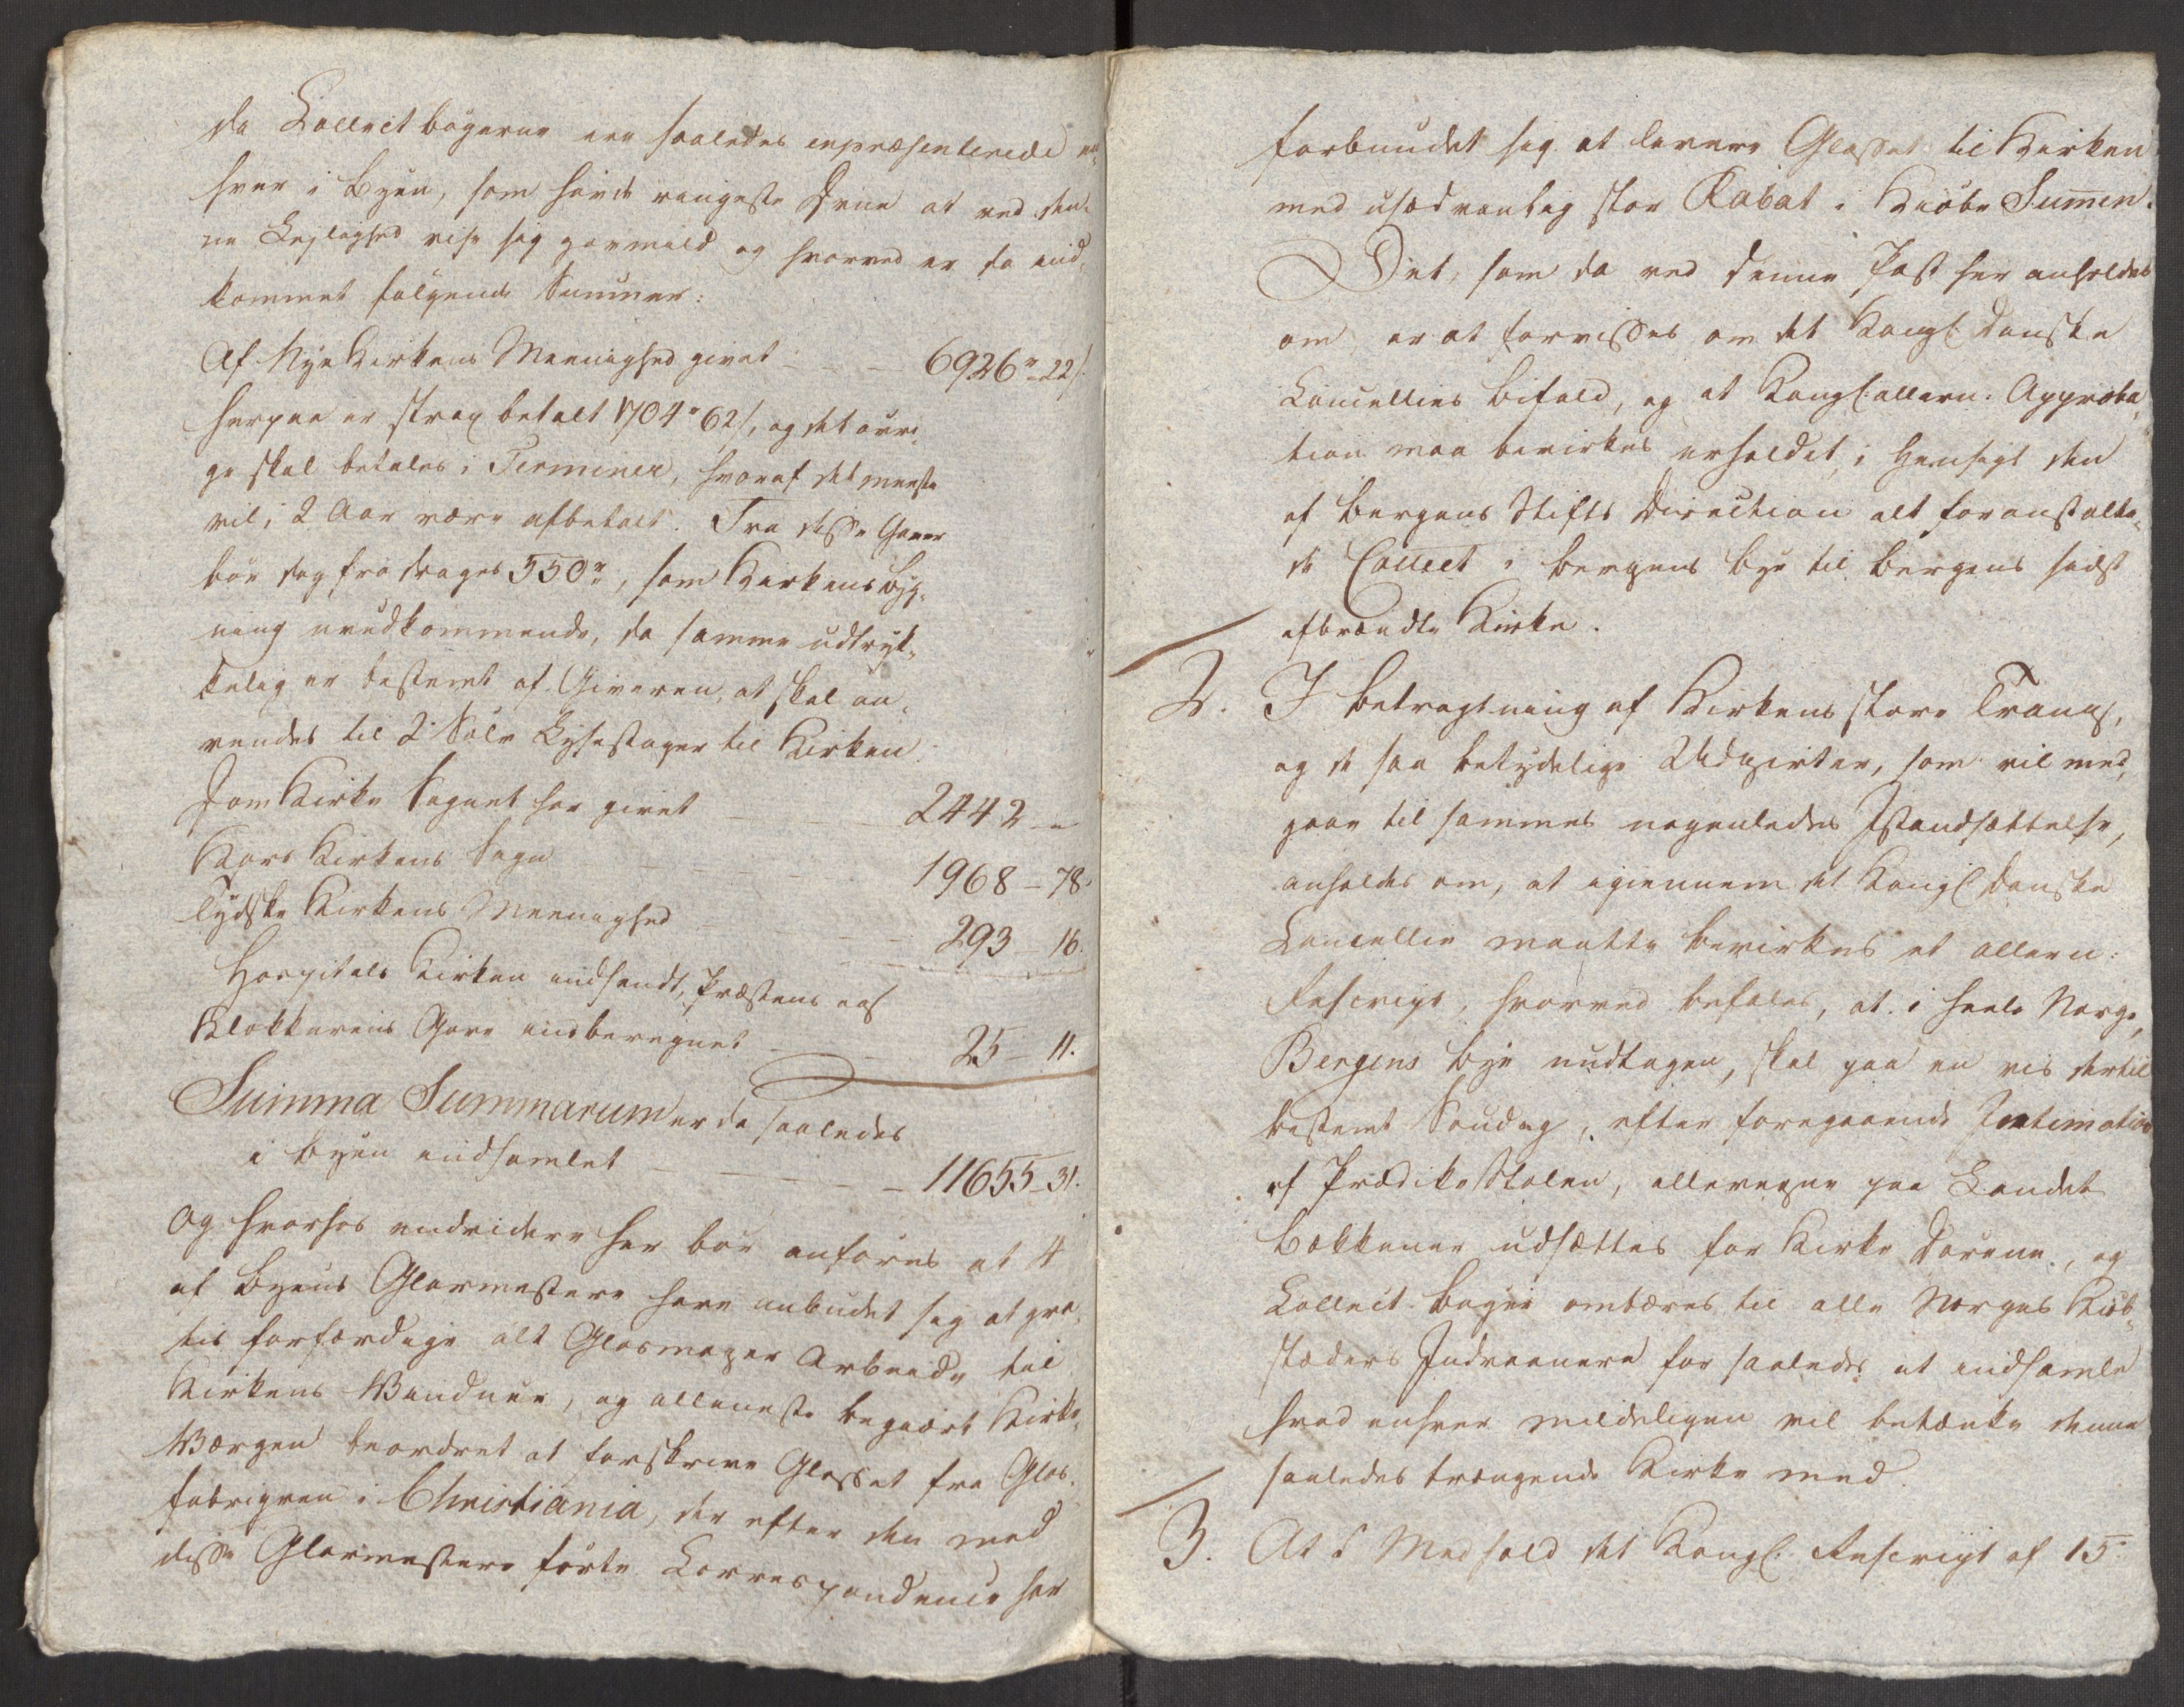 da Collect bøgerne ere saaledes repræsenterede en¬
hver i Byen, som havde ringeste Evne at ved den¬
ne Lejlighed vise sig gavmild og hvorved er da ind¬
kommet følgende Summer:
Af Nye Kirkens Meenighed givet - - - 6926 rd 22 s.
herpaa er strax betalt 1704 rd 62 s, og det øvri¬
ge skal betales i Terminer, hvoraf det meeste
vil i 2 Aar være afbetalt. Fra disse Gaver
bør dog fradrages 550 rd, som Kirkens Byg¬
ning uvedkommende, da samme udtryk¬
kelig er bestemt af Giveren, at skal an¬
vendes til 2 Sølv Lysestager til Kirken.
Dom Kirke Sognet har givet - - - 2442 - "
Kors Kirkens Sogn - - - 1968 - 78.
Tydske Kirkens Meenighed - - - 293 - 16.
Hospitals Kirken indsendt, Præstens og
Klokkerens Gave indberegnet - - 25 - 11.
Summa Summarum er da saaledes
i Byen indsamlet - - - - 11655 - 31.
Og hvorhos endvidere her bør anføres at 4
af Byens Glarmestere have anbudet sig at gra¬
tis forfærdige alt Glasmager Arbeide til
Kirkens Vinduer, og alleneste begiært Kirke¬
Værgen beordret at forskrive Glasset fra Glas¬
fabriqven i Christiania, der efter den med
disse Glarmestere førte Correspondence har
forbundet sig at levere Glasset til Kirken
med usædvanlig stor Rabat i Kiøbe Summen.
Det, som da ved denne Post her anholdes
om er at forvisses om det Kongl: Danske
Cancellies Bifald, og at Kongl: allern: Approba¬
tion maa bevirkes erholdet, i Hensigt den
af Bergens Stifts Direction alt foranstalte¬
de Collect i Bergens Bye til Bergens sidst
afbrændte Kirke.
2. I Betragtning af Kirkens store Trang,
og de saa betydelige Udgivter, som vil med¬
gaae til sammes nogenledes Istandsættelse,
anholdes om, at igiennem det Kongl: Danske
Cancellie maatte bevirkes et allern:
Rescript, hvorved befales, at i heele Norge,
Bergens Bye undtagen, skal paa en vis dertil
bestemt Søndag, efter foregaaende Intimation
af Prædike Stolen, allevegne paa Landet
Bekkener udsættes for Kirke Dørene, og
Collect Bøger ombæres til alle Norges Kiøb¬
stæders Indvaanere for saaledes at indsamle
hvad enhver mildeligen vil betænke denne
saaledes trængende Kirke med.
3. At i Medhold det Kongl: Rescript af 15